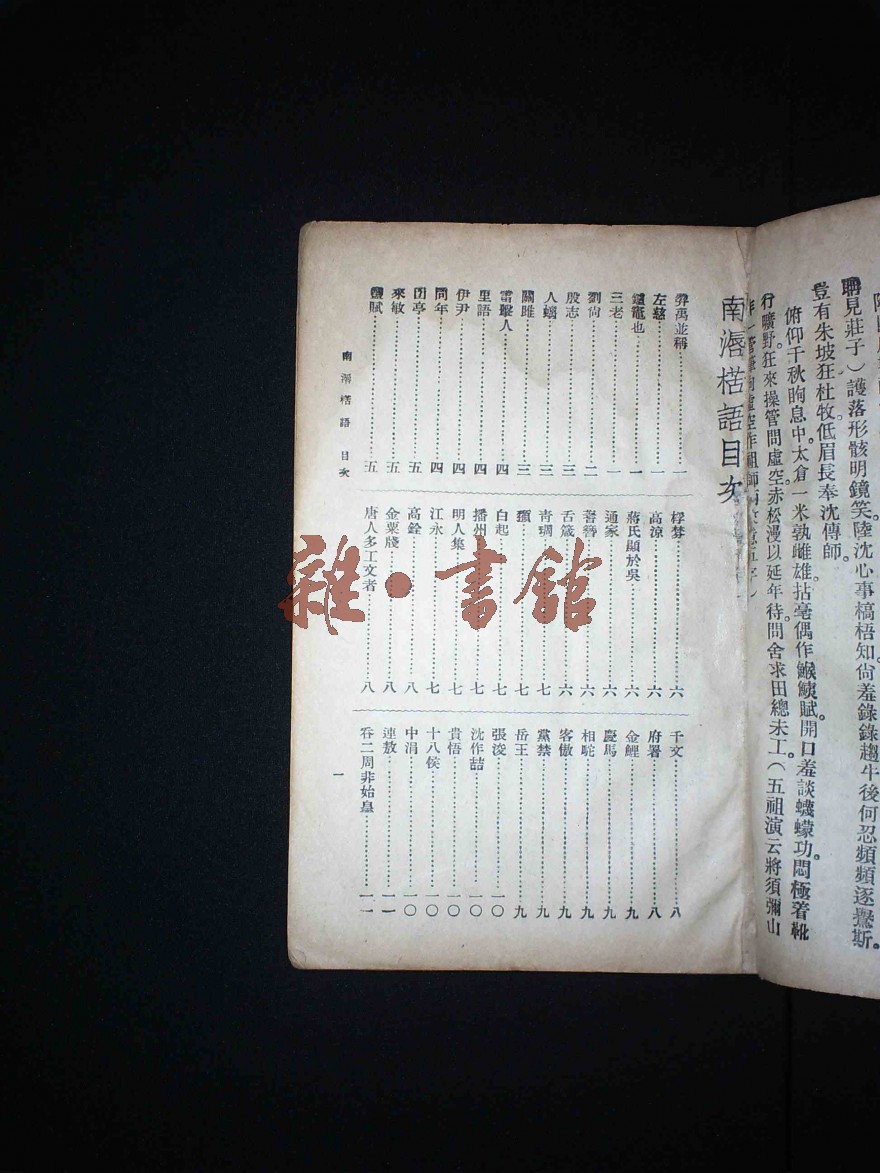 聃見莊子）護落形骸明鏡笑。陸沈心事槁梧知尙羞錄錄趨牛後何忍頻頻逐鸒斯。
登有朱坡狂杜牧低眉長奉沈傳師。
俯仰千秋眴息中。太倉一米孰雌雄。拈毫偶作鯸鮧賦。開口羞談蠛蠓功。悶極着靴
行曠野。狂來操管問虛空赤松漫以延年待。問舍求田總未工。（五祖演云將須彌山
南漘楛語目次
羿禹並稱一
左慈一
鑪竈也一
三老一
劉尙二
殷志三
人蝎三
關雎三
雷擊人四
里語四
伊尹四
同年四
囝亭五
來敏五
鹽賦五
桴棼六
高涼六
蔣氏顯於吳六
通家六
蓍簪六
舌箴六
靑瑣七
獺七
白起七
播州七
明人集七
江永七
高銓八
金粟牋八
唐人多工文者八
千文八
府署八
金鯉九
慶馬九
相駝九
客傲九
黨禁九
岳王九
張浚一〇
沈作喆一〇
貴悟一〇
十八侯一〇
中涓一〇
連敖一一
吞二周非始皇一一
南漘楛語 目次
一
雜·書館